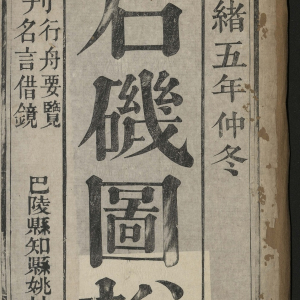 緒五年仲冬
石磯圖
刊行舟要覽
刊名言借鏡
巴陵縣知縣姚